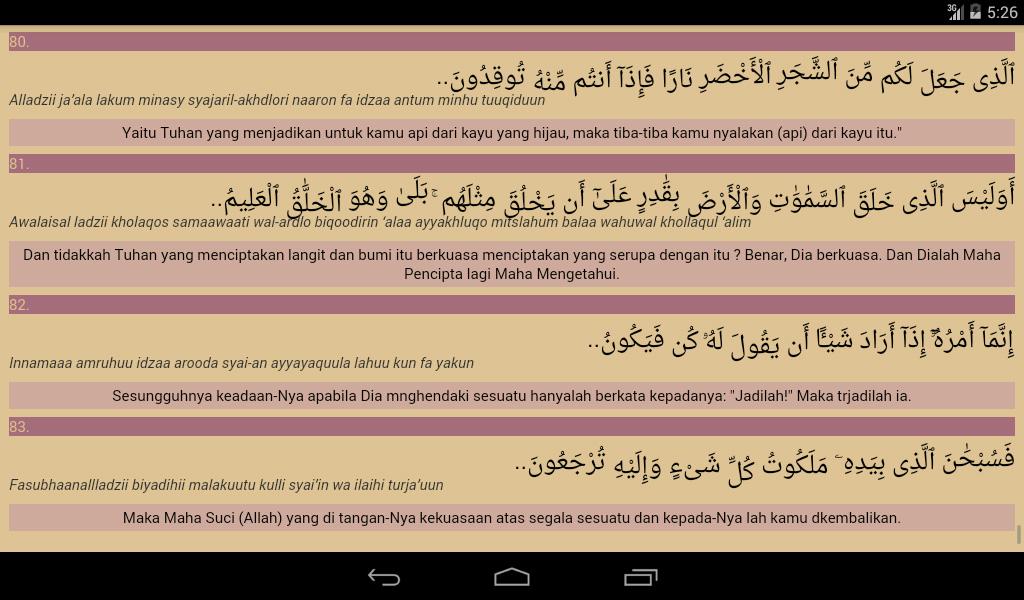 3G 5:26
80.
ٱلَّذِى جَعَلَ لَكُم مِّنَ ٱلشَّجَرِ ٱلْأَخْضَرِ نَارًا فَإِذَآ أَنتُم مِّنْهُ تُوقِدُونَ..
Alladzii ja’ala lakum minasy syajaril-akhdlori naaron fa idzaa antum minhu tuuqiduun
Yaitu Tuhan yang menjadikan untuk kamu api dari kayu yang hijau, maka tiba-tiba kamu nyalakan (api) dari kayu itu."
81.
أَوَلَيْسَ ٱلَّذِى خَلَقَ ٱلسَّمَٰوَٰتِ وَٱلْأَرْضَ بِقَٰدِرٍ عَلَىٰٓ أَن يَخْلُقَ مِثْلَهُم ۚ بَلَىٰ وَهُوَ ٱلْخَلَّٰقُ ٱلْعَلِيمُ..
Awalaisal ladzii kholaqos samaawaati wal-ardlo biqoodirin ‘alaa ayyakhluqo mitslahum balaa wahuwal khollaqul ‘alim
Dan tidakkah Tuhan yang menciptakan langit dan bumi itu berkuasa menciptakan yang serupa dengan itu ? Benar, Dia berkuasa. Dan Dialah Maha
Pencipta lagi Maha Mengetahui.
82.
إِنَّمَآ أَمْرُهُۥٓ إِذَآ أَرَادَ شَيْـًٔا أَن يَقُولَ لَهُۥ كُن فَيَكُونُ..
Innamaaa amruhuu idzaa arooda syai-an ayyayaquula lahuu kun fa yakun
Sesungguhnya keadaan-Nya apabila Dia mnghendaki sesuatu hanyalah berkata kepadanya: "Jadilah!" Maka trjadilah ia.
83.
فَسُبْحَٰنَ ٱلَّذِى بِيَدِهِۦ مَلَكُوتُ كُلِّ شَىْءٍ وَإِلَيْهِ تُرْجَعُونَ..
Fasubhaanallladzii biyadihii malakuutu kulli syai’in wa ilaihi turja’uun
Maka Maha Suci (Allah) yang di tangan-Nya kekuasaan atas segala sesuatu dan kepada-Nya lah kamu dkembalikan.